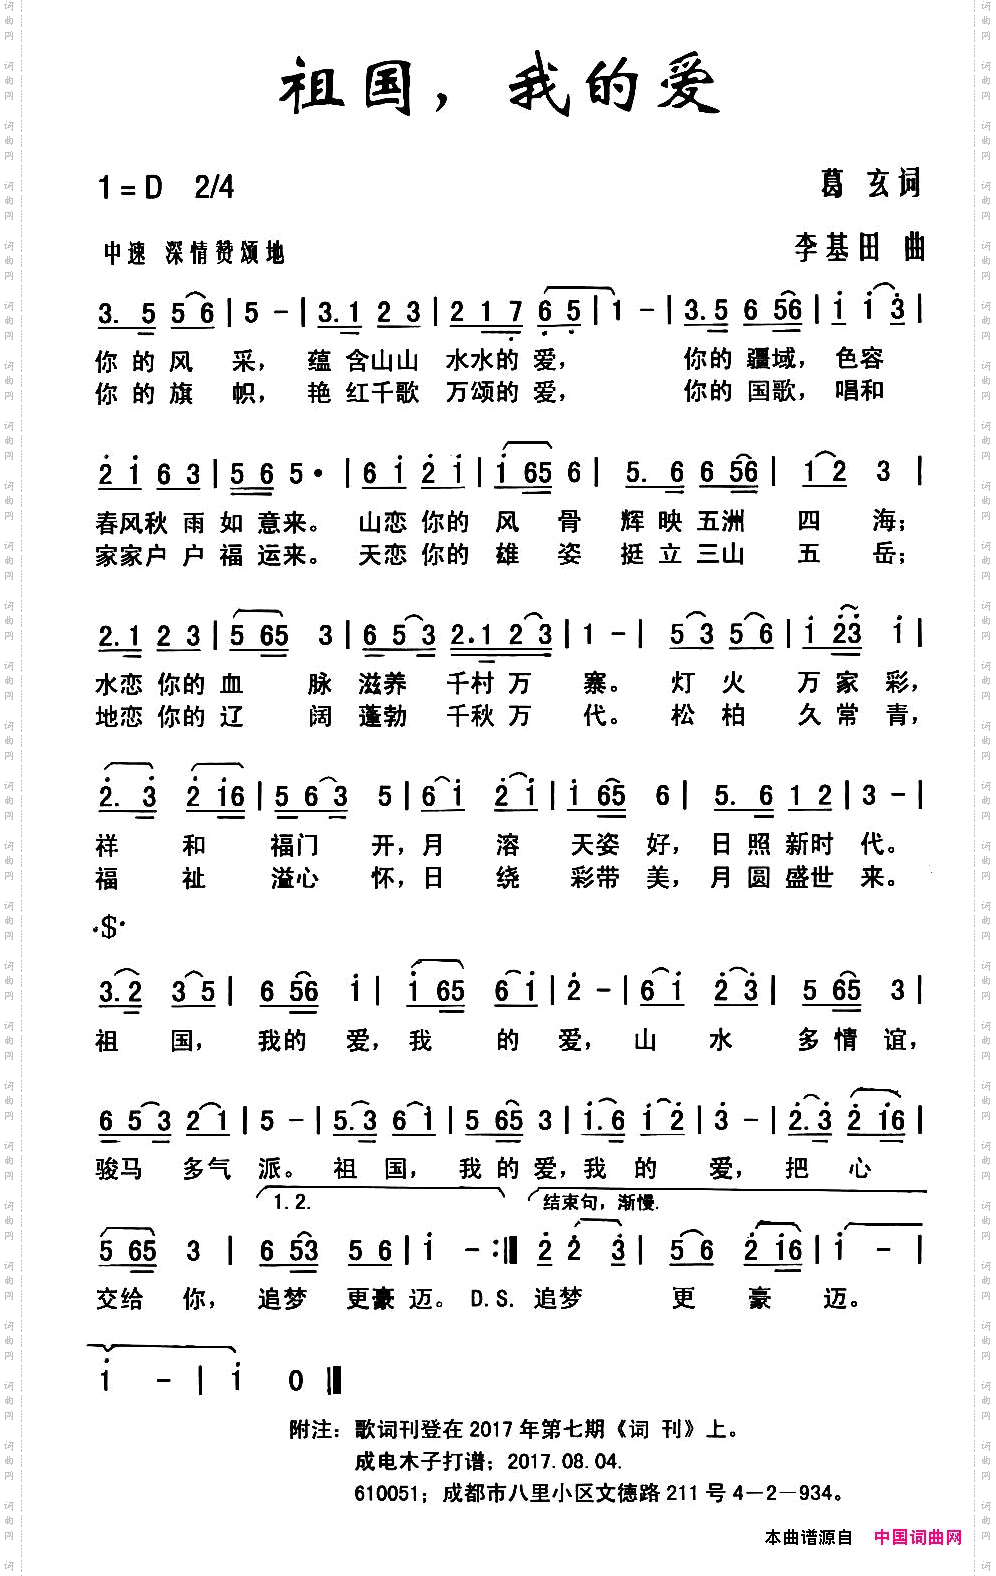 祖国，我的爱
1=D 2/4
葛 玄词
中速 深情赞颂地
李基田 曲
3. 5 5 6 | 5 - | 3. 1 2 3 | 2 1 7 6 5 | 1 - | 3. 5 6 56 | i i 3 |
你 的 风 采， 蕴 含山山 水水的 爱， 你的 疆域，色容
你 的 旗 帜， 艳 红千歌 万颂的 爱， 你的 国歌，唱和
2 i 6 3 | 5 6 5· | 6 i 2 i | i 65 6 | 5. 6 6 56 | 1 2 3 |
春风秋 雨 如 意来。 山恋 你的 风 骨 辉 映 五洲 四 海；
家家户 户 福 运来。 天恋 你的 雄 姿 挺 立 三山 五 岳；
2. 1 2 3 | 5 65 3 | 6 5 3 2. 1 2 3 | 1 - | 5 3 5 6 | i 23 i |
水恋 你的 血 脉 滋养 千村 万 寨。 灯 火 万 家 彩，
地恋 你的 辽 阔 蓬勃 千秋 万 代。 松 柏 久 常 青，
2. 3 2 i6 | 5 6 3 5 | 6 i 2 i | i 65 6 | 5. 6 1 2 | 3 - |
祥 和 福门 开，月 溶 天姿 好， 日 照 新时 代。
福 祉 溢心 怀，日 绕 彩带 美， 月 圆 盛世 来。
·$·
3. 2 3 5 | 6 56 i | i 65 6 i | 2 - | 6 i 2 3 | 5 65 3 |
祖 国， 我的 爱，我 的 爱， 山 水 多 情 谊，
6 5 3 2 1 | 5 - | 5. 3 6 i | 5 65 3 | i. 6 i 2 | 3 - | 2. 3 2 i6 |
骏马 多气 派。 祖 国， 我 的 爱，我 的 爱， 把 心
1. 2. 结束句，渐慢.
5 65 3 | 6 53 5 6 | i - :|| 2 2 3 | 5 6 2 i6 | i - |
交给 你， 追梦 更豪 迈。 D.S. 追梦 更 豪 迈。
i - | i 0 ||
附注：歌词刊登在 2017 年第七期《词 刊》上。
成电木子打谱；2017.08.04.
610051；成都市八里小区文德路 211 号 4－2－934。
本曲谱源自 中国词曲网